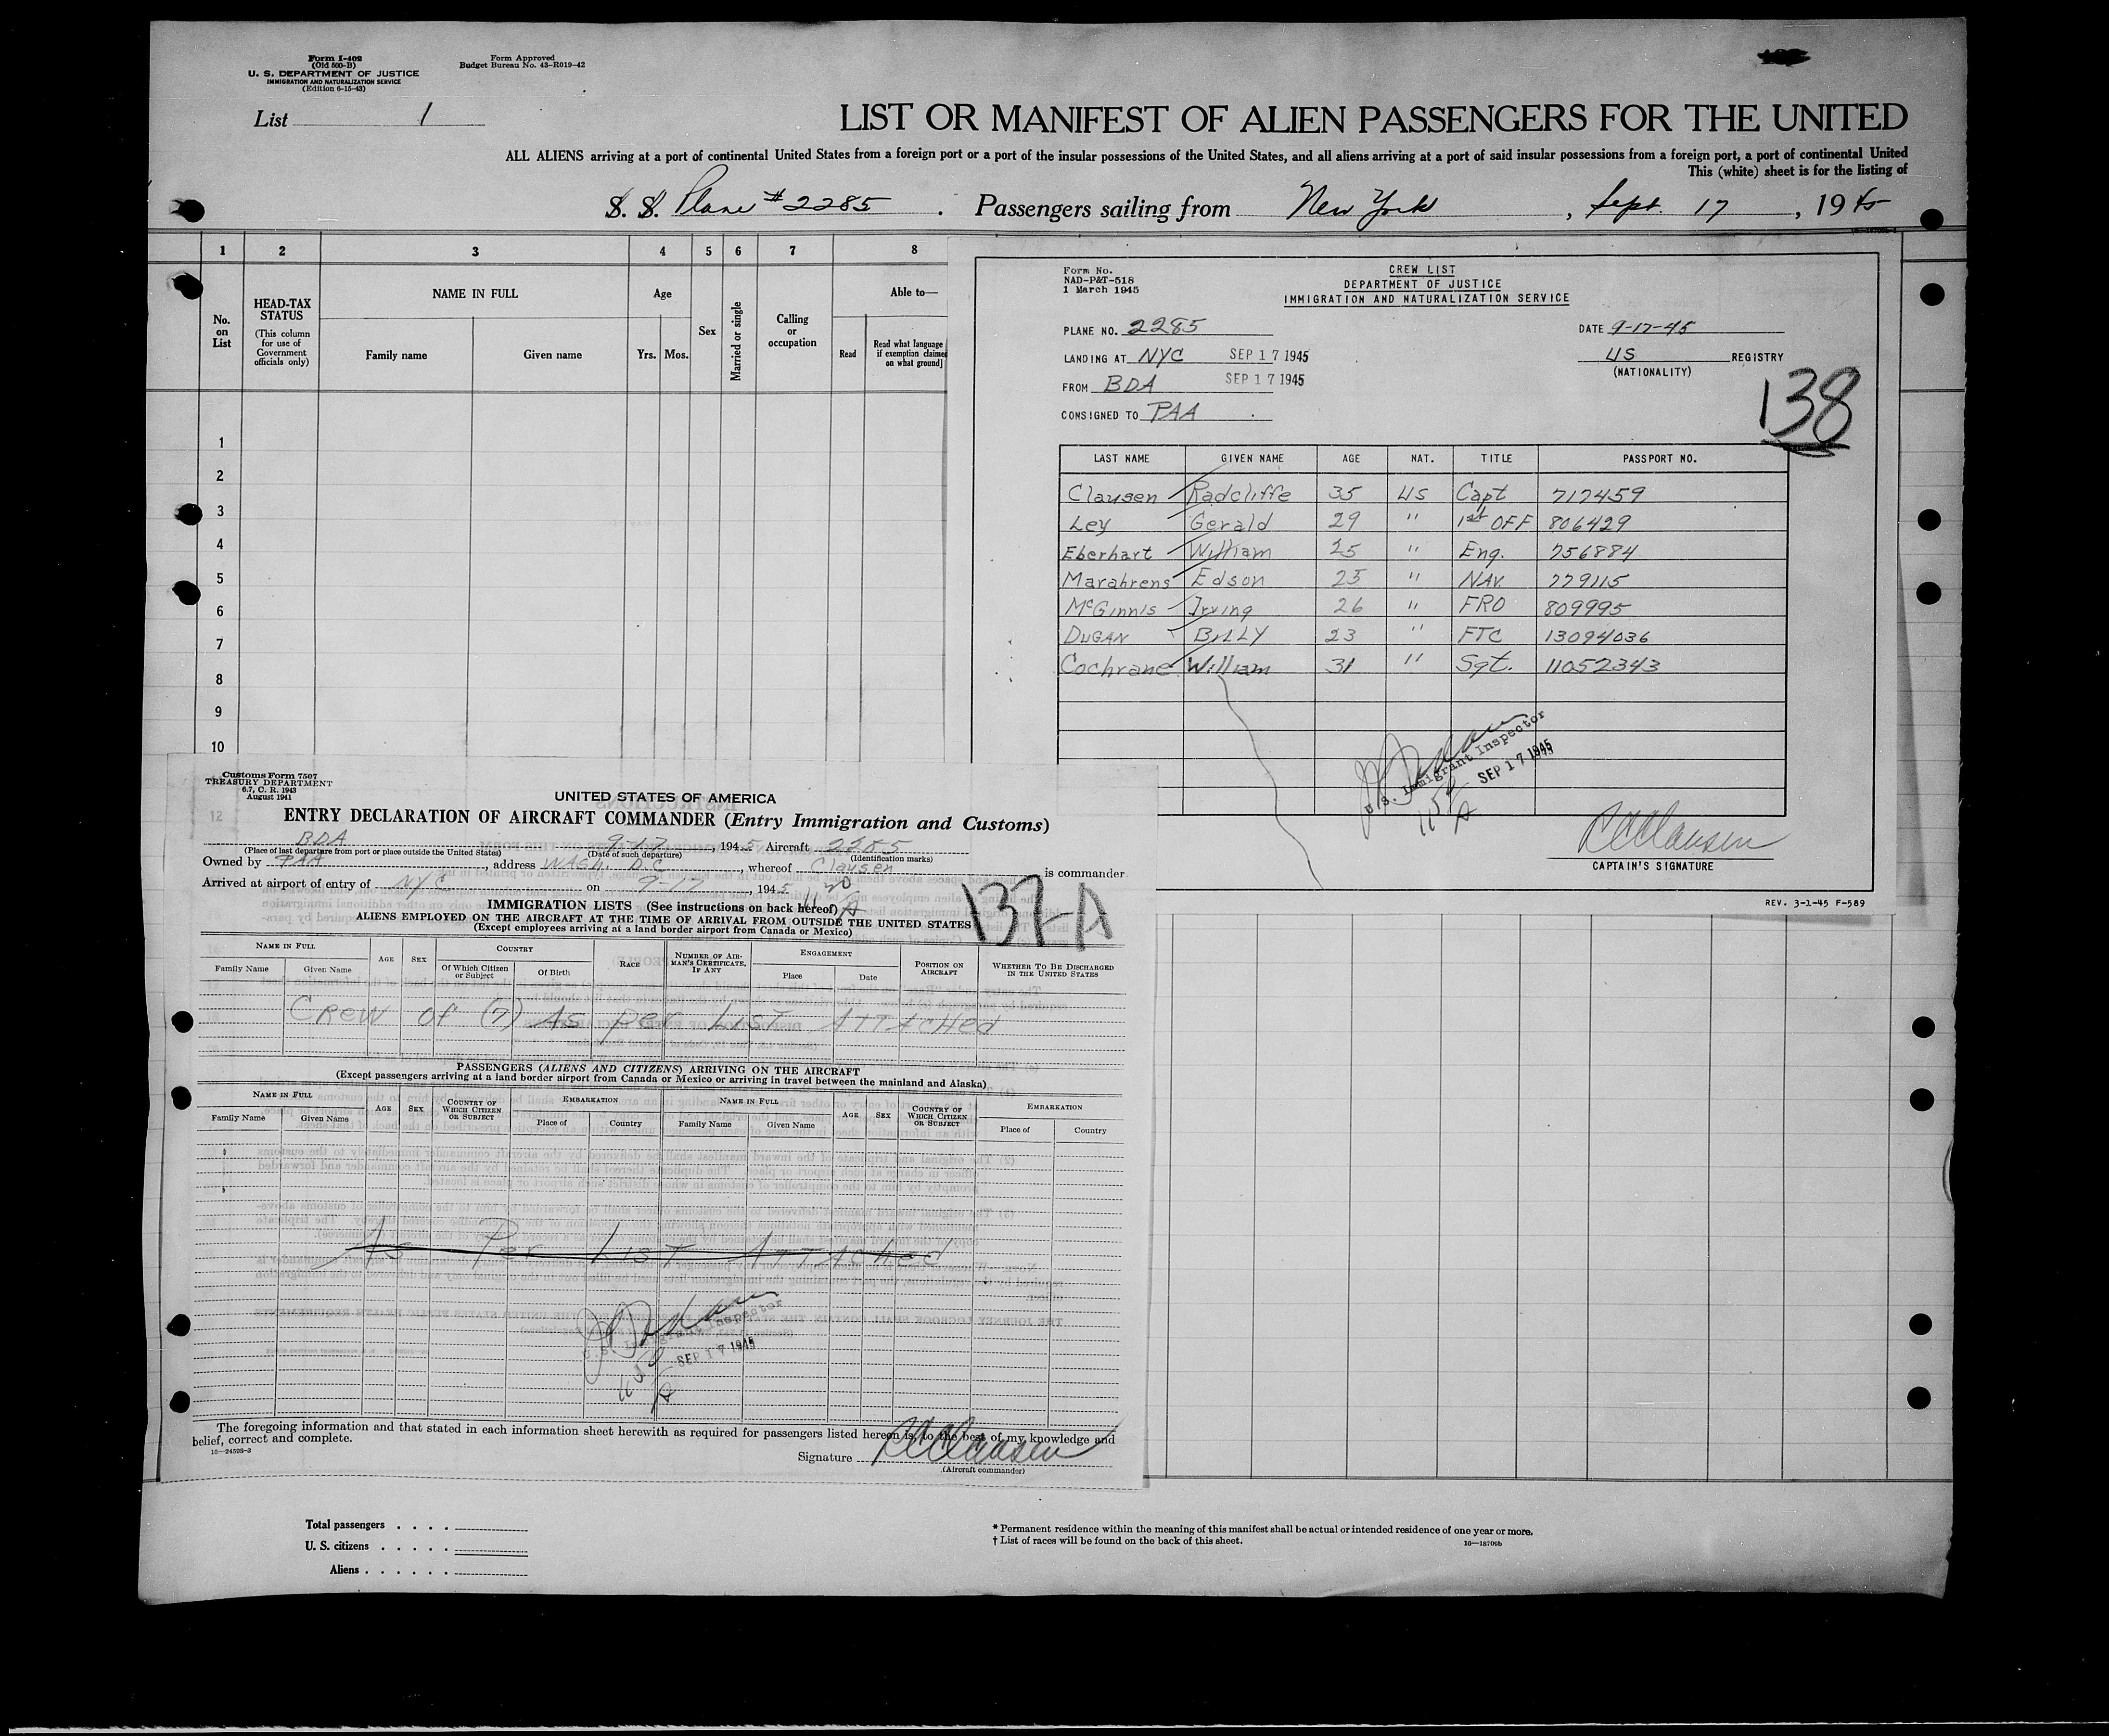 Form I-402
(Old 500-B)
U. S. DEPARTMENT OF JUSTICE
IMMIGRATION AND NATURALIZATION SERVICE
(Edition 6-15-43)
Form Approved
Budget Bureau No. 43-R019-42
List 1
LIST OR MANIFEST OF ALIEN PASSENGERS FOR THE UNITED
ALL ALIENS arriving at a port of continental United States from a foreign port or a port of the insular possessions of the United States, and all aliens arriving at a port of said insular possessions from a foreign port, a port of continental United
This (white) sheet is for the listing of
S. S. Plane # 2285 . Passengers sailing from New York , Sept. 17 , 1945
1 2 3 4 5 6 7 8
No. on List
HEAD-TAX STATUS
(This column for use of Government officials only)
NAME IN FULL
Family name Given name
Age
Yrs. Mos.
Sex
Married or single
Calling or occupation
Able to—
Read
Read what language if exemption claimed on what ground]
1
2
3
4
5
6
7
8
9
10
12
Form No.
NAD-P&T-518
1 March 1945
CREW LIST
DEPARTMENT OF JUSTICE
IMMIGRATION AND NATURALIZATION SERVICE
PLANE NO. 2285 DATE 9-17-45
LANDING AT NYC SEP 17 1945 US REGISTRY
(NATIONALITY)
FROM BDA SEP 17 1945
CONSIGNED TO PAA
138
LAST NAME GIVEN NAME AGE NAT. TITLE PASSPORT NO.
Clausen Radcliffe 35 US Capt 717459
Ley Gerald 29 " 1st OFF 806429
Eberhart William 25 " Eng. 756884
Marahrens Edson 25 " NAV. 779115
McGinnis Irving 26 " FRO 809995
DUGAN BILLY 23 " FTC 13094036
Cochrane William 31 " Sgt. 11052343
U.S. Immigrant Inspector
SEP 17 1945
R C Clausen
CAPTAIN'S SIGNATURE
REV. 3-1-45 F-589
Customs Form 7507
TREASURY DEPARTMENT
6.7, C. R. 1943
August 1941
UNITED STATES OF AMERICA
ENTRY DECLARATION OF AIRCRAFT COMMANDER (Entry Immigration and Customs)
BDA 9-17, 1945 Aircraft 2285
(Place of last departure from port or place outside the United States) (Date of such departure) (Identification marks)
Owned by PAA address WASH. D.C , whereof Clausen is commander.
Arrived at airport of entry of NYC on 9-17, 1945
137-A
IMMIGRATION LISTS (See instructions on back hereof)
ALIENS EMPLOYED ON THE AIRCRAFT AT THE TIME OF ARRIVAL FROM OUTSIDE THE UNITED STATES
(Except employees arriving at a land border airport from Canada or Mexico)
NAME IN FULL AGE SEX COUNTRY RACE NUMBER OF AIRMAN'S CERTIFICATE, IF ANY ENGAGEMENT POSITION ON AIRCRAFT WHETHER TO BE DISCHARGED IN THE UNITED STATES
Family Name Given Name Of Which Citizen or Subject Of Birth Place Date
Crew of (7) As per List Attached
PASSENGERS (ALIENS AND CITIZENS) ARRIVING ON THE AIRCRAFT
(Except passengers arriving at a land border airport from Canada or Mexico or arriving in travel between the mainland and Alaska)
NAME IN FULL AGE SEX COUNTRY OF WHICH CITIZEN OR SUBJECT EMBARKATION NAME IN FULL AGE SEX COUNTRY OF WHICH CITIZEN OR SUBJECT EMBARKATION
Family Name Given Name Place of Country Family Name Given Name Place of Country
As Per List Attached
U.S. Immigrant Inspector
SEP 17 1945
The foregoing information and that stated in each information sheet herewith as required for passengers listed hereon is, to the best of my knowledge and
belief, correct and complete.
16—24593-3
Signature R C Clausen
(Aircraft commander)
Total passengers
U. S. citizens
Aliens
* Permanent residence within the meaning of this manifest shall be actual or intended residence of one year or more.
† List of races will be found on the back of this sheet.
16—18706b